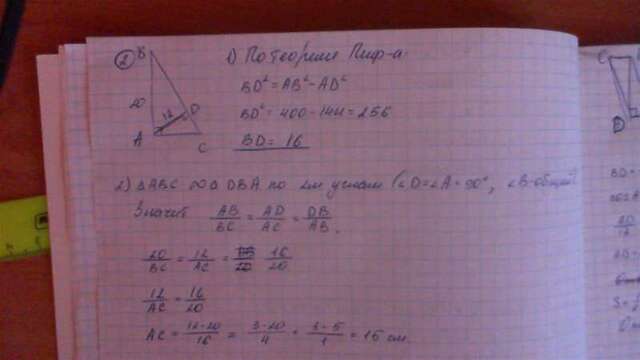 ② B
20
12
D
A
C
1) По теореме Пиф-а
BD² = AB² - AD²
BD² = 400 - 144 = 256
BD = 16
2) △ABC ∾ △DBA по 2м углам (∠D=∠A=90°, ∠B-общий)
Значит AB/BC = AD/AC = DB/AB.
20/BC = 12/AC = 16/20
12/AC = 16/20
AC = 12·20/16 = 3·20/4 = 3·5/1 = 15 см.
C
D
BD =